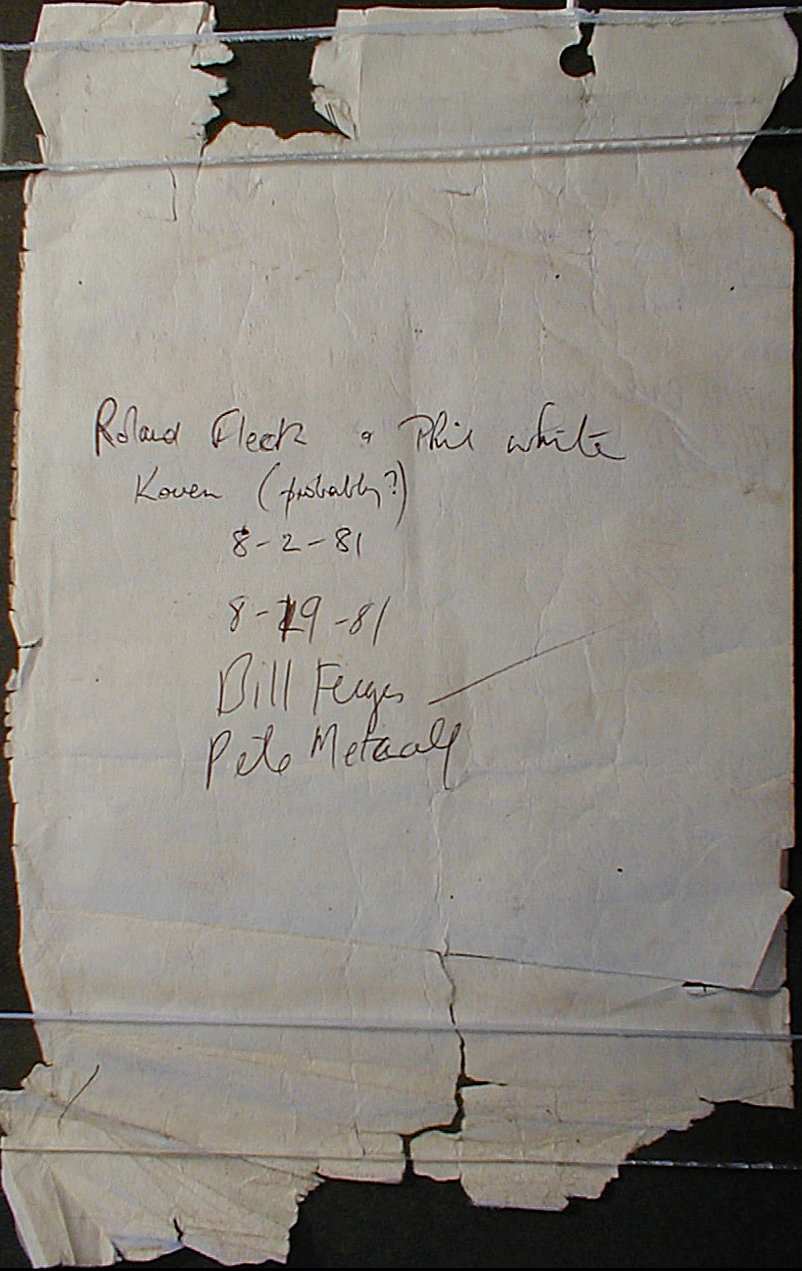 Roland Fleck & Phil White
Koven (probably?)
8-2-81
8-19-81
Bill
Pete Metcalf